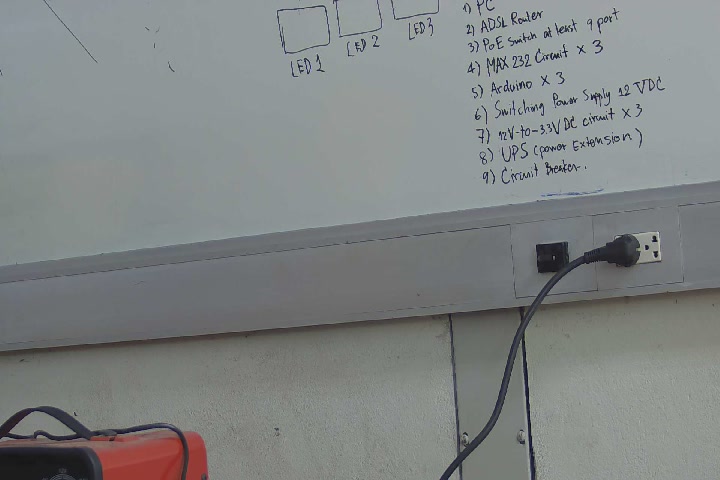 LED 1
LED 2
LED3
1) PC
2) ADSL Router
3) PoE Switch at least 9 port
4) MAX 232 Circuit x 3
5) Arduino x 3
6) Switching Power Supply 12 VDC
7) 12V-to-3.3V DC circuit x 3
8) UPS (power Extension)
9) Circuit Breaker.